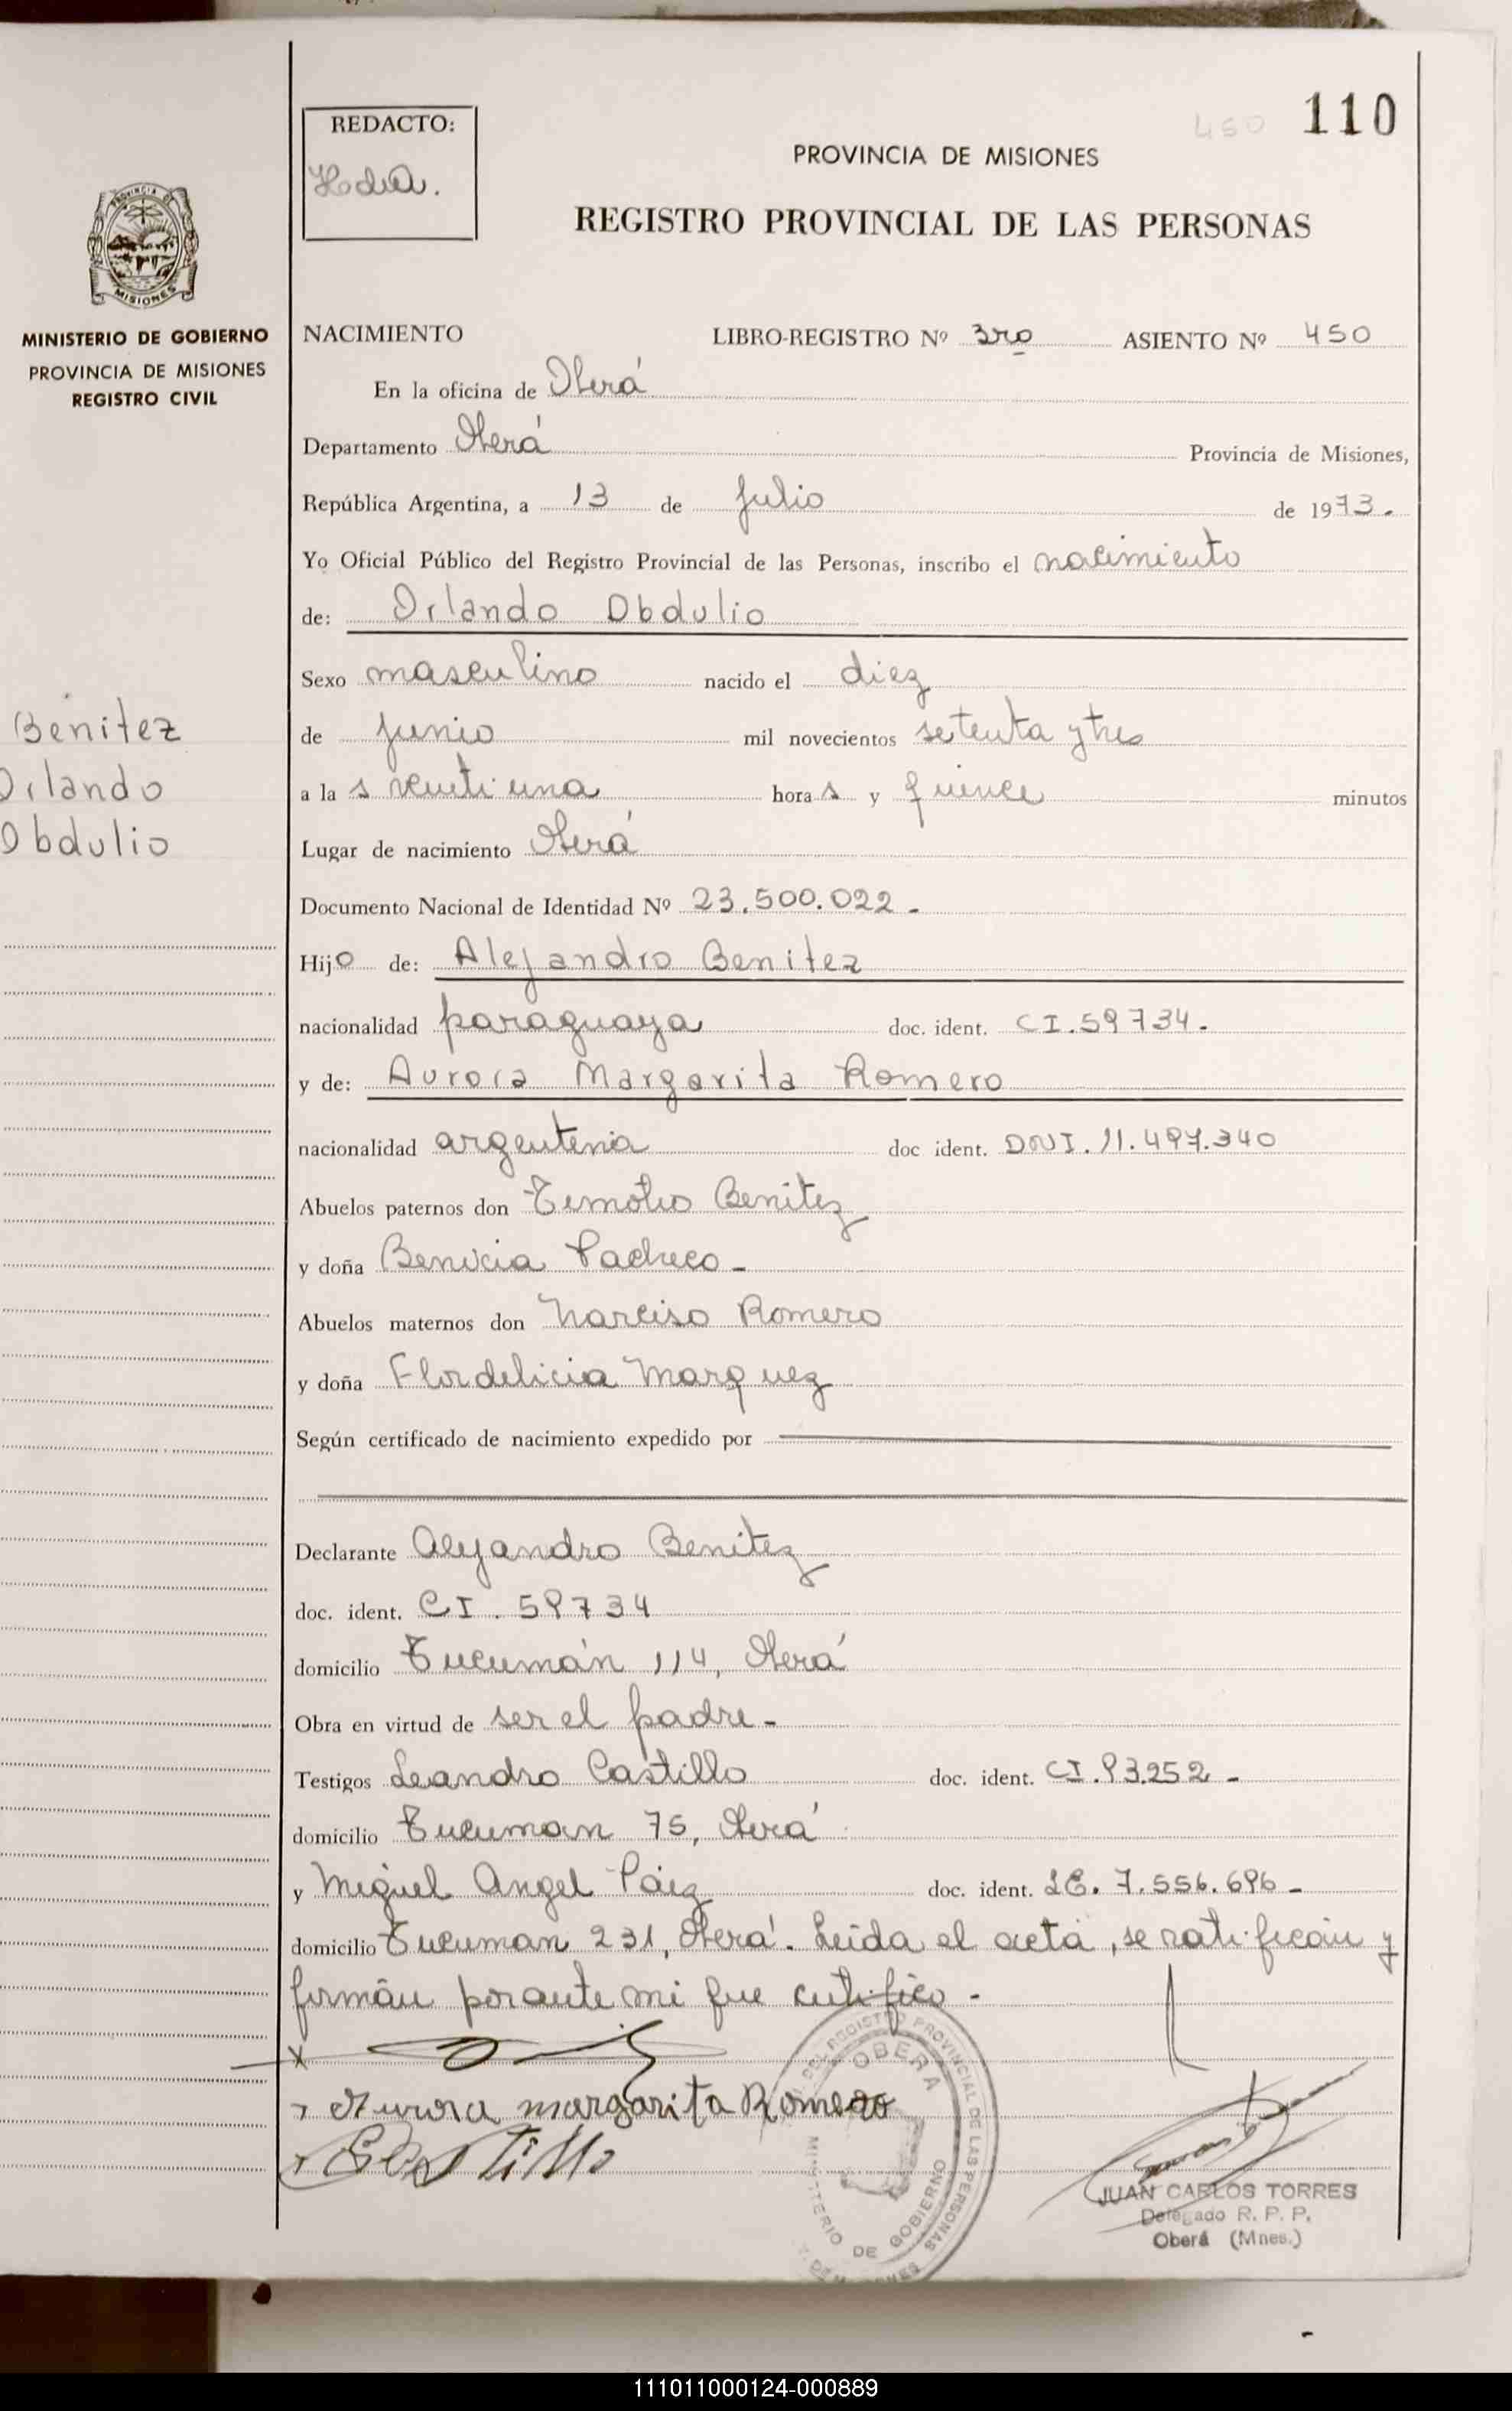 110
450
REDACTO:
PROVINCIA DE MISIONES
REGISTRO PROVINCIAL DE LAS PERSONAS
PROVINCIA DE
MISIONES
MINISTERIO DE GOBIERNO
PROVINCIA DE MISIONES
REGISTRO CIVIL
Benitez
Orlando
Obdulio
NACIMIENTO LIBRO-REGISTRO Nº 3ro ASIENTO Nº 450
En la oficina de Oberá
Departamento Oberá Provincia de Misiones,
República Argentina, a 13 de Julio de 1973.
Yo Oficial Público del Registro Provincial de las Personas, inscribo el nacimiento
de: Orlando Obdulio
Sexo masculino nacido el diez
de junio mil novecientos setenta y tres
a las veinti una horas y quince minutos
Lugar de nacimiento Oberá
Documento Nacional de Identidad Nº 23.500.022.-
Hijo de: Alejandro Benitez
nacionalidad paraguaya doc. ident. CI.59734.
y de: Aurora Margarita Romero
nacionalidad argentina doc ident. DNI. 11.497.340
Abuelos paternos don Timoteo Benitez
y doña Benicia Pacheco-
Abuelos maternos don Narciso Romero
y doña Flordelicia Marquez
Según certificado de nacimiento expedido por
Declarante Alejandro Benitez
doc. ident. CI. 59734
domicilio Tucumán 114, Oberá
Obra en virtud de ser el padre-
Testigos Leandro Castillo doc. ident. CI.93.252-
domicilio Tucuman 75, Oberá
y Miguel Angel Páez doc. ident. LE. 7.556.696-
domicilio Tucuman 231, Oberá. Leida el acta, se ratifican y
firman por ante mi que certifico-
Aurora margarita Romero
Castillo
DEL REGISTRO PROVINCIAL DE LAS PERSONAS
OBERA
MINISTERIO DE GOBIERNO
JUAN CARLOS TORRES
Delegado R. P. P.
Oberá (Mnes.)
111011000124-000889